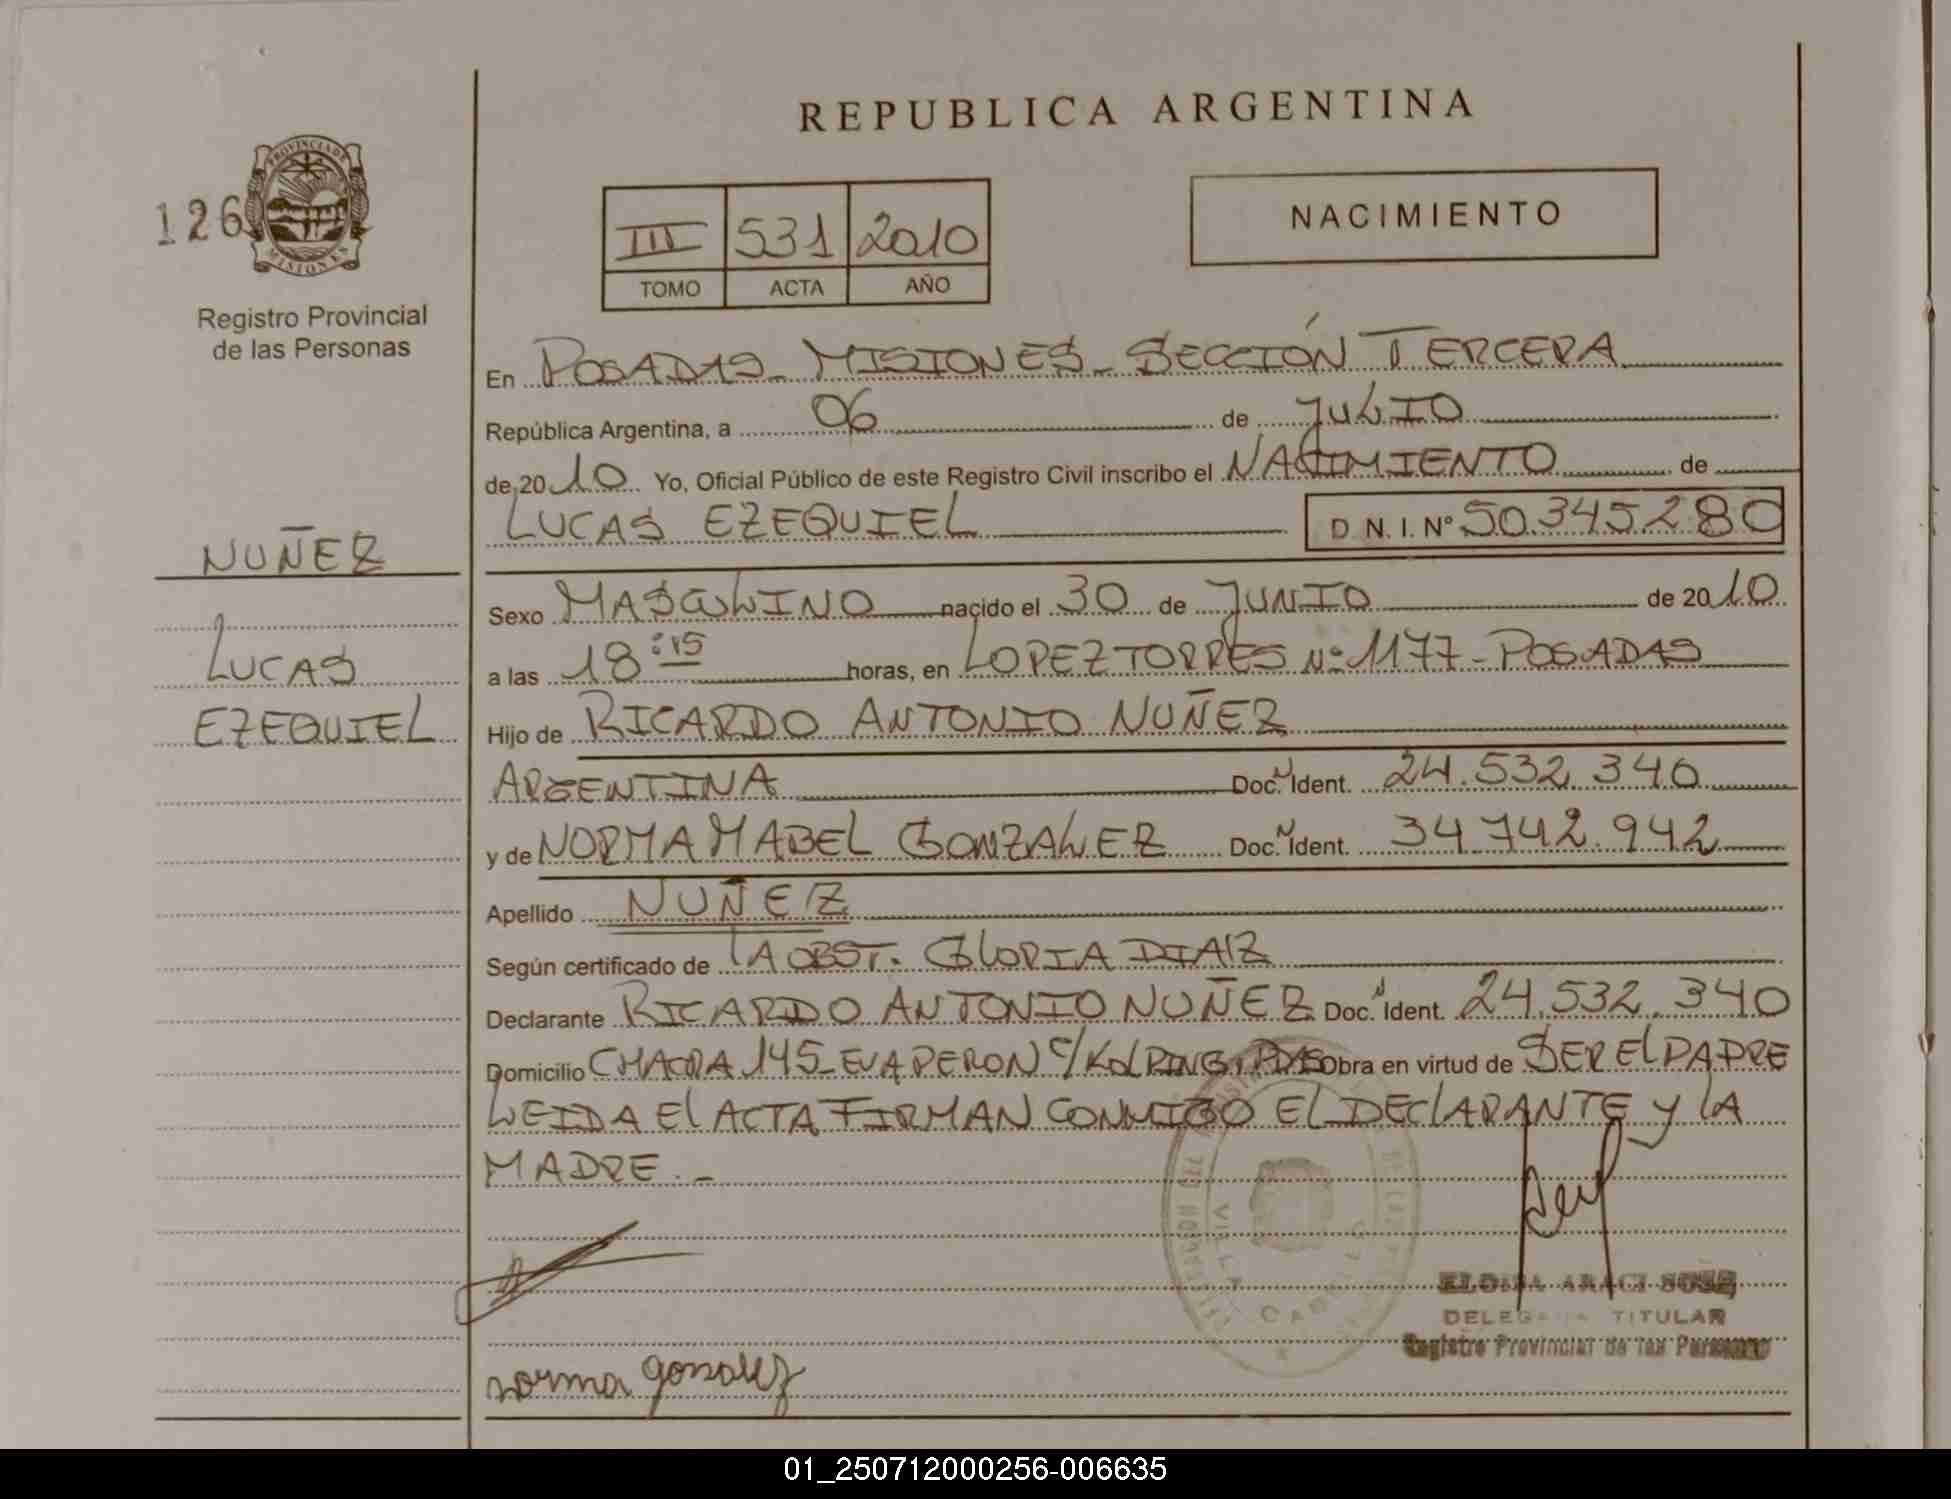 REPUBLICA ARGENTINA
126
PROVINCIA DE
MISIONES
Registro Provincial
de las Personas
III 531 2010
TOMO ACTA AÑO
NACIMIENTO
En POSADAS - MISIONES - SECCIÓN TERCERA
República Argentina, a 06 de JULIO
de 2010 Yo, Oficial Público de este Registro Civil inscribo el NACIMIENTO de
LUCAS EZEQUIEL D.N.I. Nº 50.345.280
NUÑEZ
LUCAS
EZEQUIEL
Sexo MASCULINO nacido el 30 de JUNIO de 2010
a las 18:15 horas, en LOPEZ TORRES Nº 1177 - POSADAS
Hijo de RICARDO ANTONIO NUÑEZ
ARGENTINA Doc. Ident. 24.532.340
y de NORMA MABEL GONZALEZ Doc. Ident. 34.742.942
Apellido NUÑEZ
Según certificado de LA OBST. GLORIA DIAZ
Declarante RICARDO ANTONIO NUÑEZ Doc. Ident. 24.532.340
Domicilio CHACRA 145 - EVA PERON C/ KOLPING, PDAS Obra en virtud de SER EL PADRE
LEIDA EL ACTA FIRMAN CONMIGO EL DECLARANTE Y LA
MADRE. -
VILLA CABELLO
ELOISA ARACI SOSA
DELEGADA TITULAR
Registro Provincial de las Personas
norma gonzalez
01_250712000256-006635